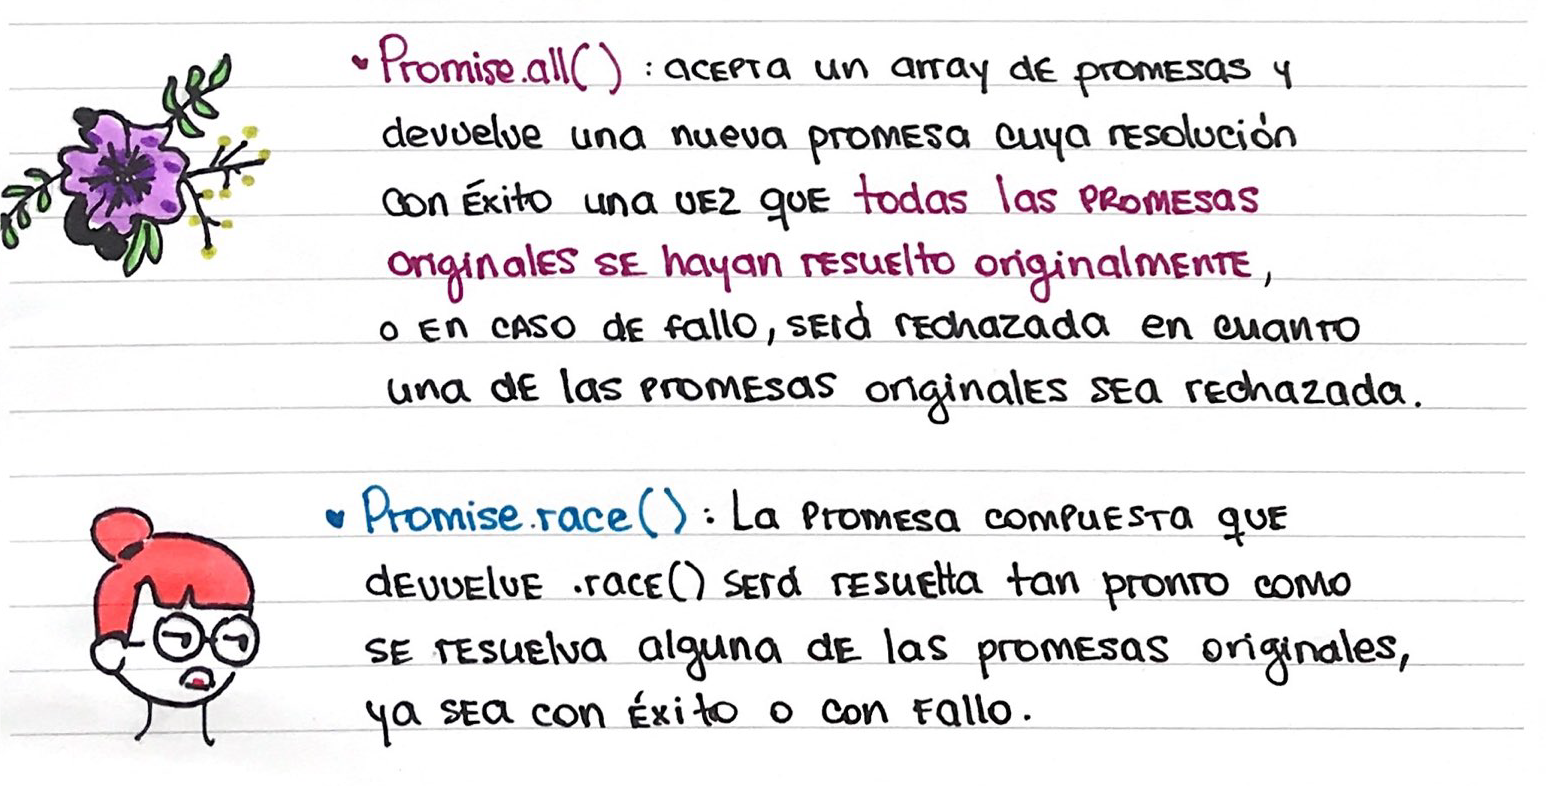 Promise.all() : acepta un array de promesas y
devuelve una nueva promesa cuya resolución
con éxito una vez que todas las promesas
originales se hayan resuelto originalmente,
o en caso de fallo, será rechazada en cuanto
una de las promesas originales sea rechazada.
Promise.race() : La promesa compuesta que
devuelve .race() será resuelta tan pronto como
se resuelva alguna de las promesas originales,
ya sea con éxito o con fallo.